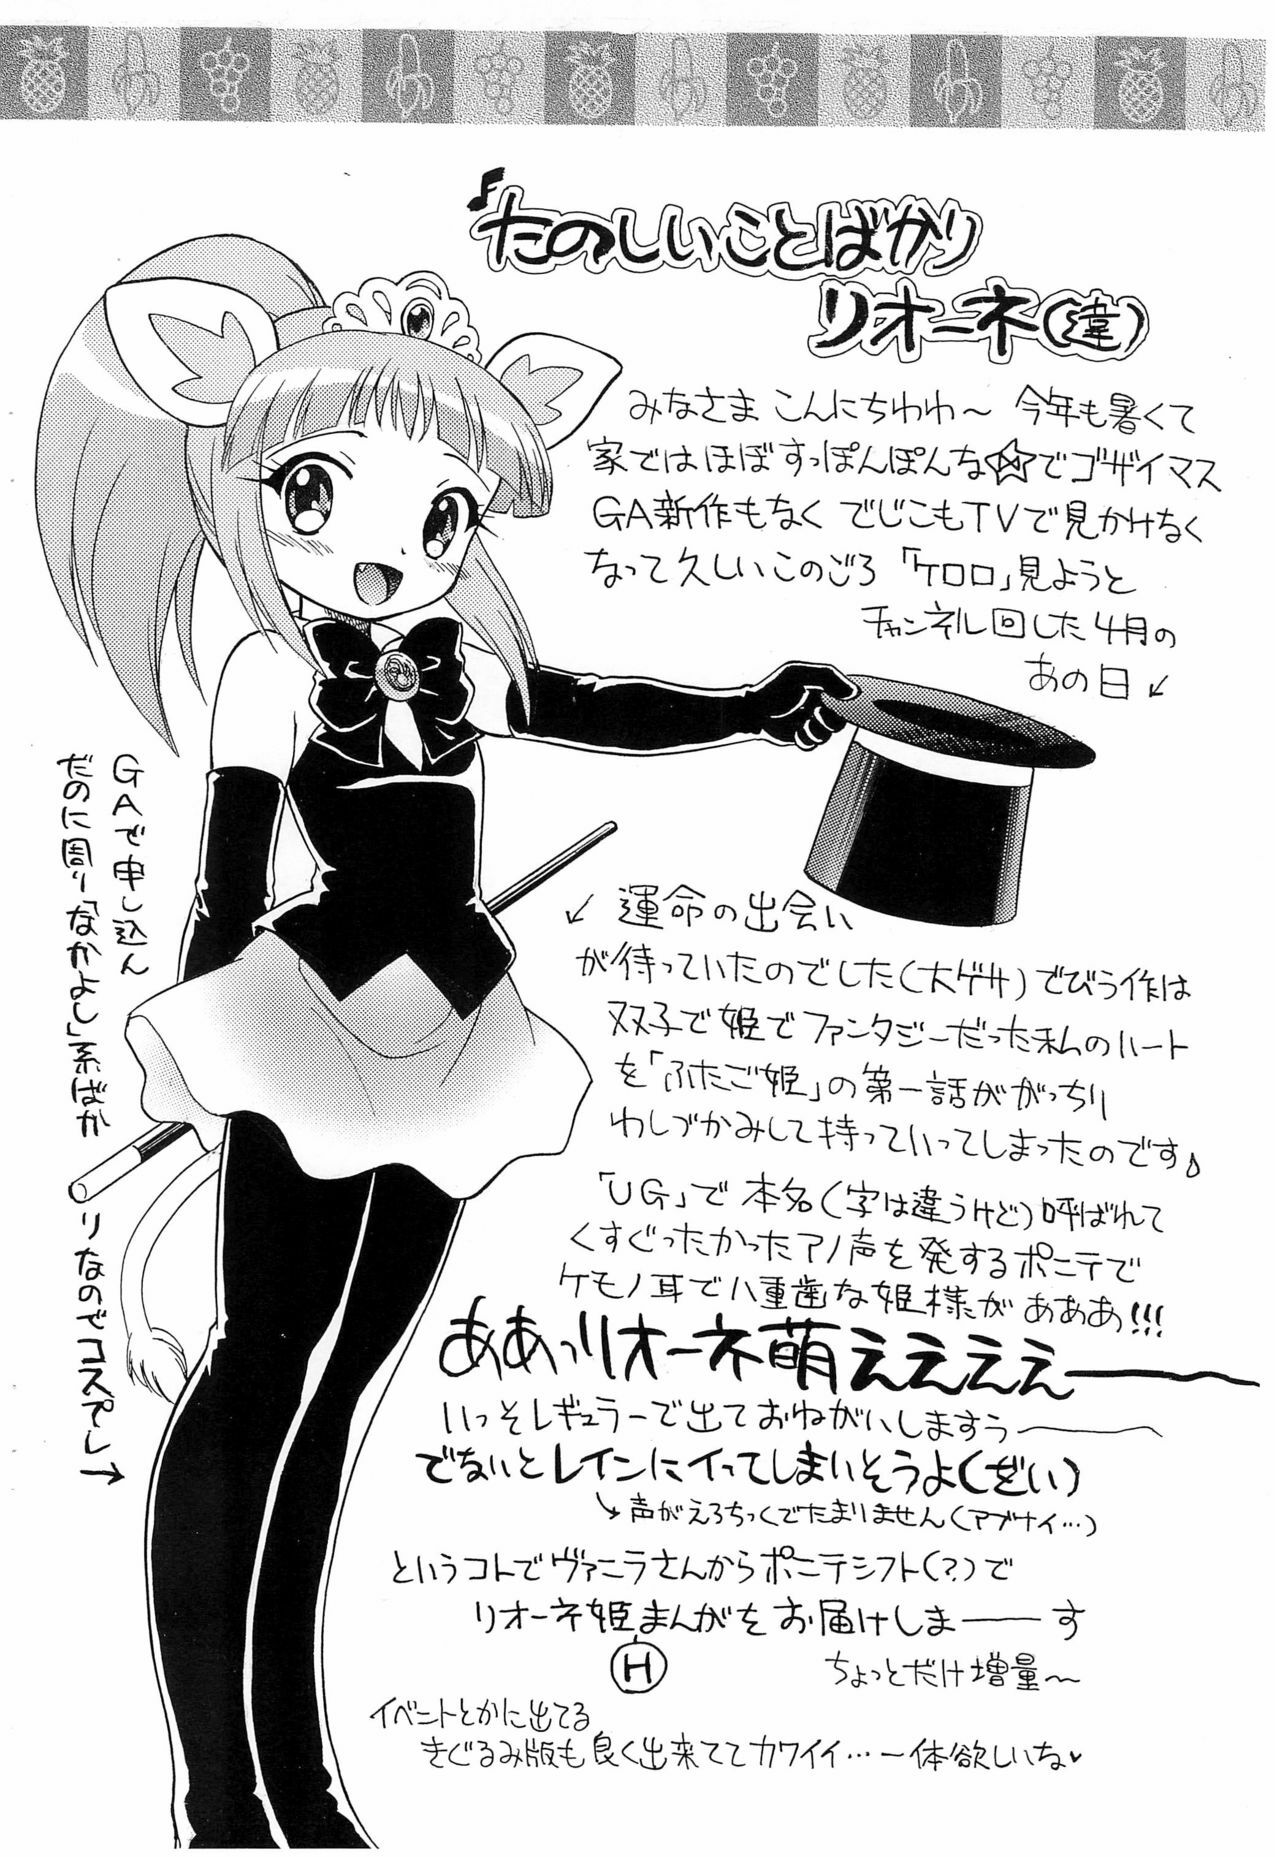 たのしいことばかり
リオーネ(違)
みなさま こんにちわわ～ 今年も暑くて
家ではほぼすっぽんぽんな☆でゴザイマス
GA新作もなく でじこもTVで見かけなく
なって久しいこのごろ 「ケロロ」見ようと
チャンネル回した4月の
あの日↙
← 運命の出会い
が待っていたのでした(大ゲサ)でびう作は
双子で姫でファンタジーだった私のハート
を「ふたご姫」の第一話ががっちり
わしづかみして持っていってしまったのです♪
「UG」で本名(字は違うけど)呼ばれて
くすぐったかったアノ声を発するポニテで
ケモノ耳で八重歯な姫様がぁぁぁ!!!
ああっリオーネ萌えぇぇぇ――
いっそレギュラーで出ておねがいしますぅ――
でないとレインにイってしまいそうよ(ざい)
↳声がえろちっくでたまりません(アブナイ…)
というコトでヴァニラさんからポニテシフト(?)で
リオーネ姫まんがをお届けしま――す
H
ちょっとだけ増量～
イベントとかに出てる
きぐるみ版も良く出来ててカワイイ…一体欲しいな♥
GAで申し込ん
だのに周り「なかよし」系ばか
りなのでコスプレ→